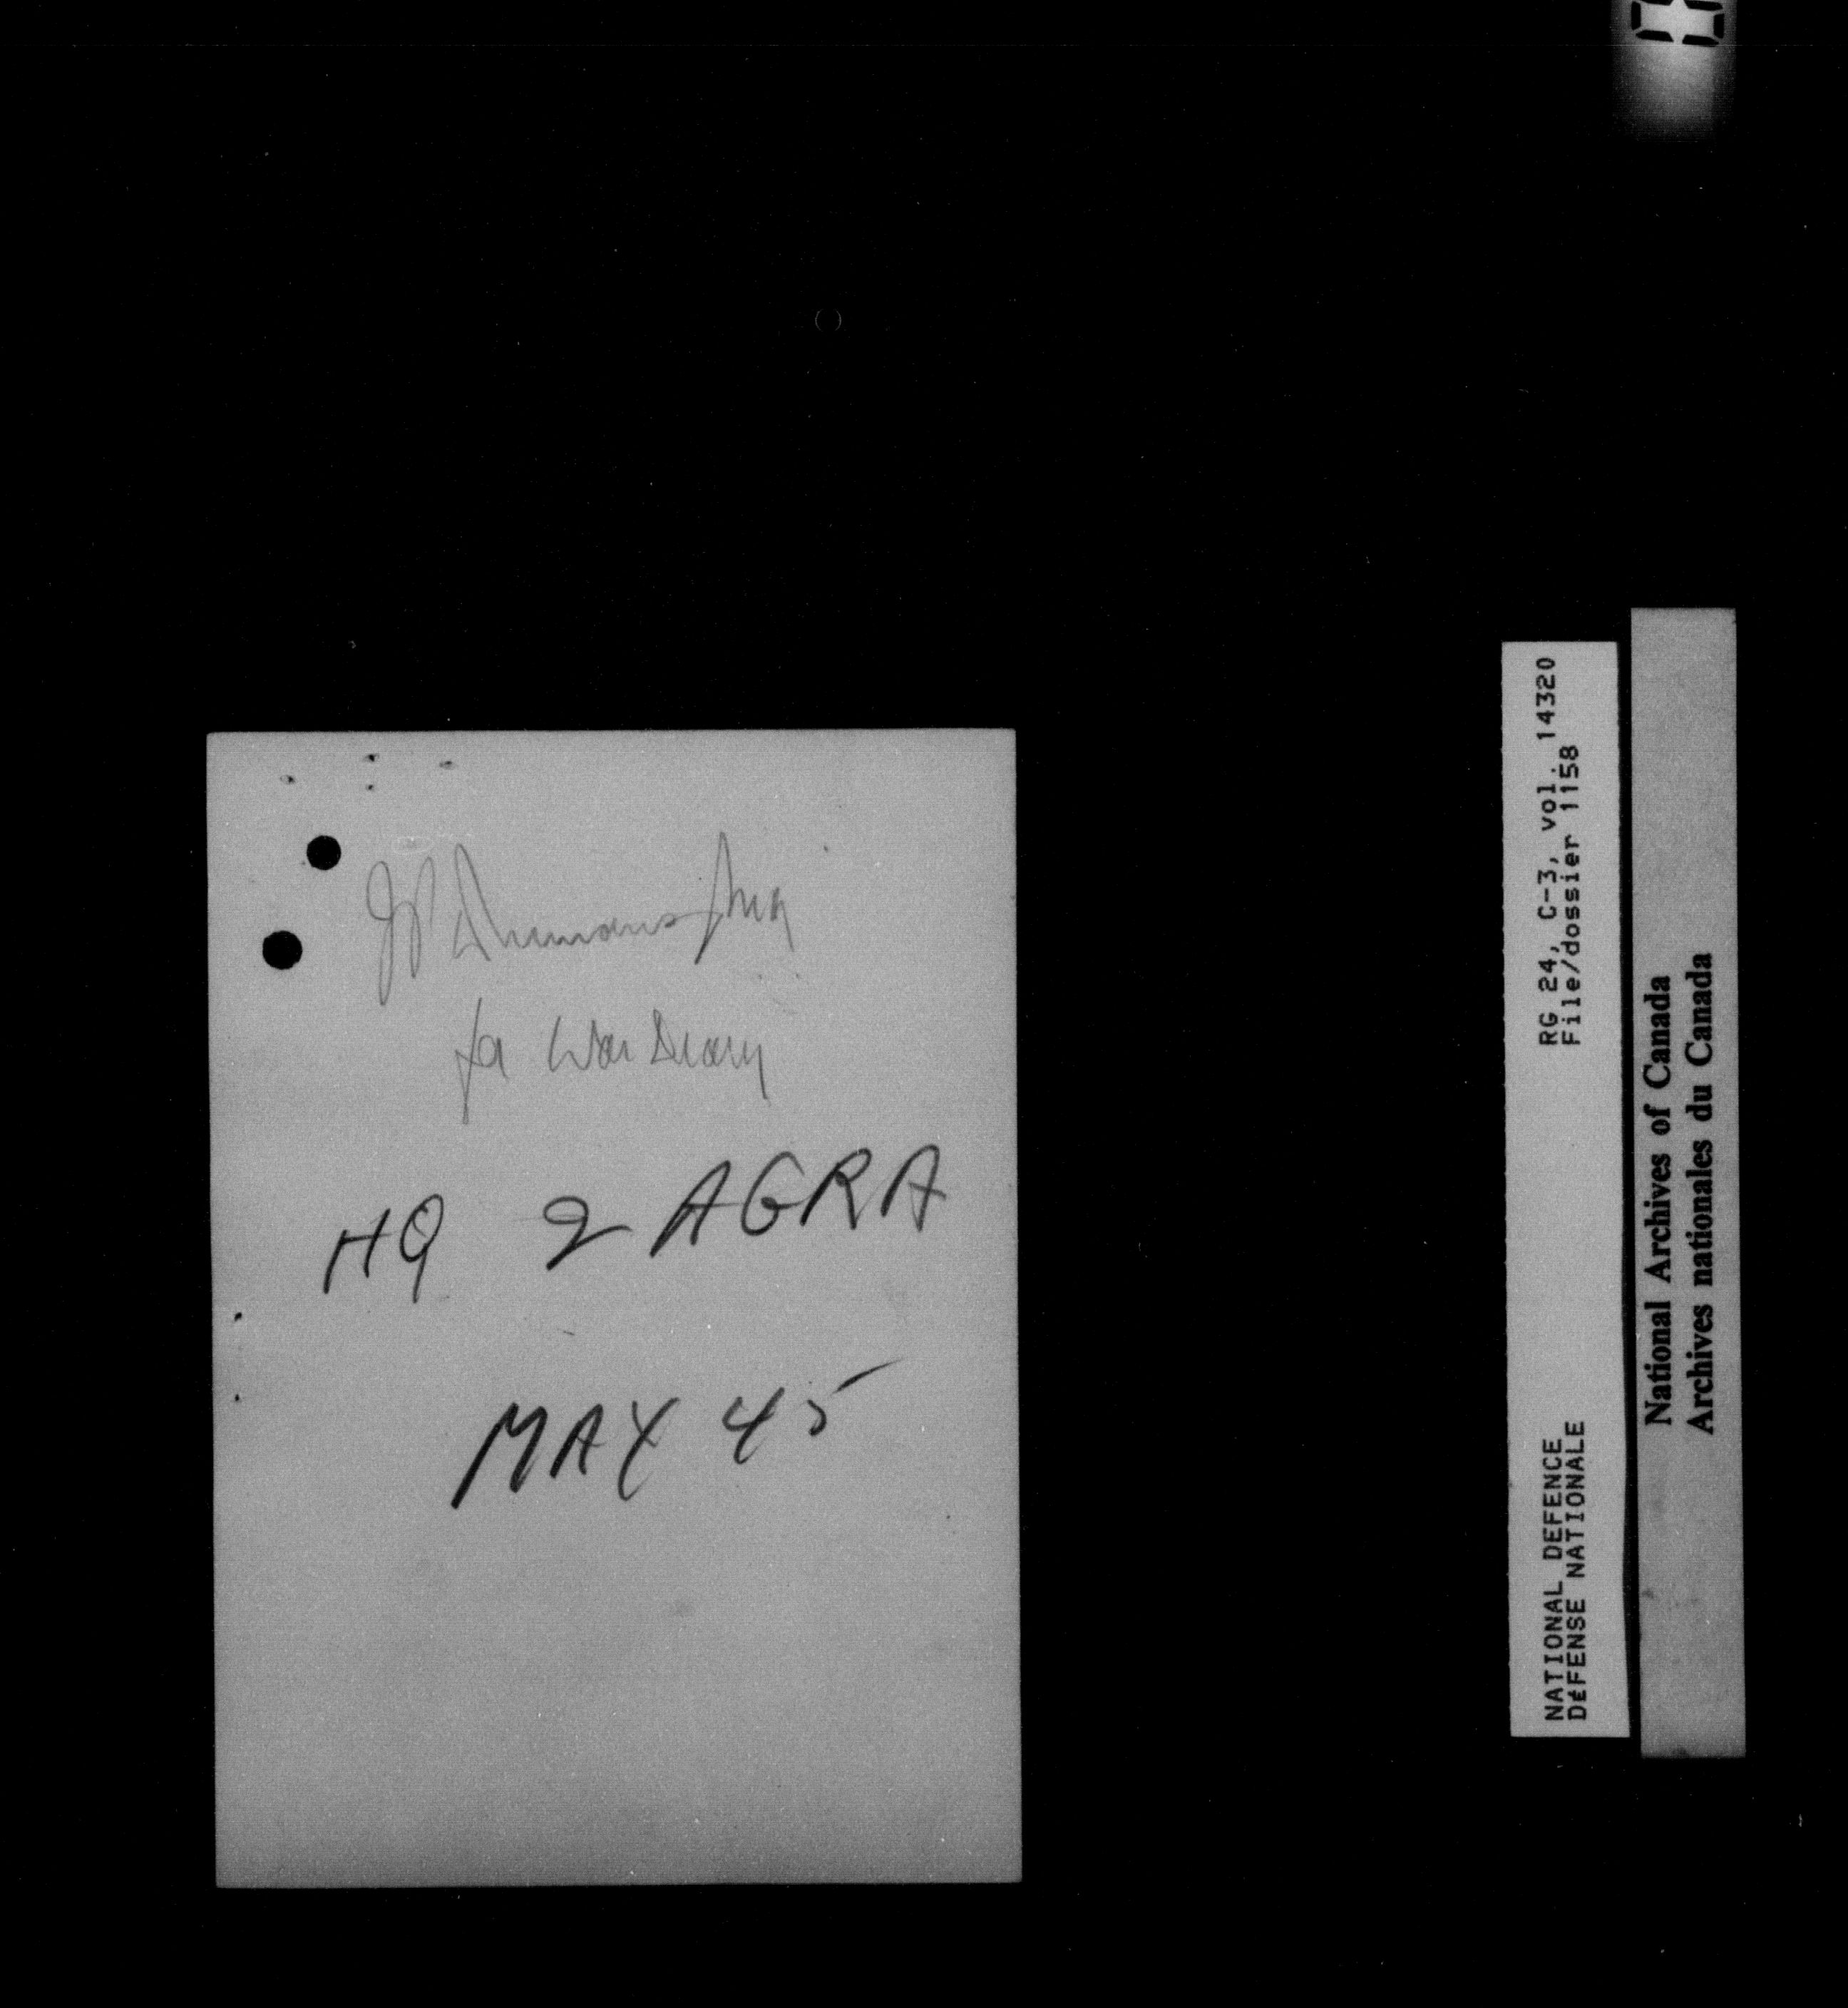 for War Diary
HQ 2 AGRA
MAY 45
NATIONAL DEFENCE
DÉFENSE NATIONALE
RG 24, C-3, vol. 14320
File/dossier 1158
National Archives of Canada
Archives nationales du Canada